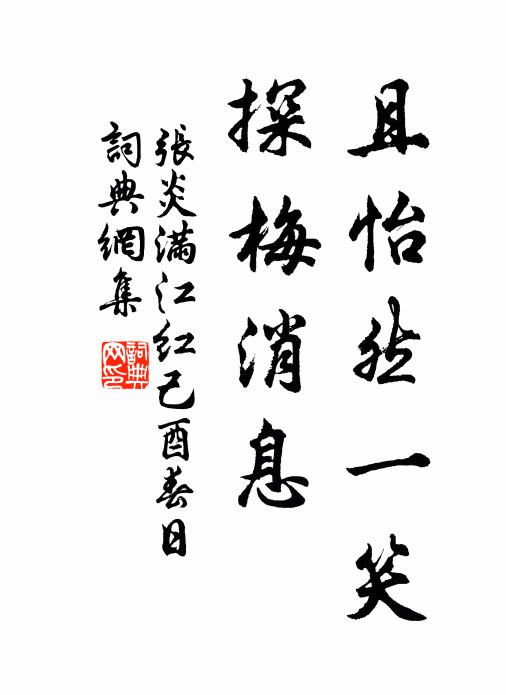 且怡然一笑
探梅消息
張炎滿江紅己酉春日
詞典網集
詞典網印